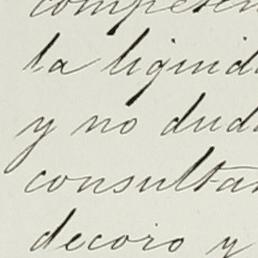 competen
la liquid
y no dud
consultar
decoro y